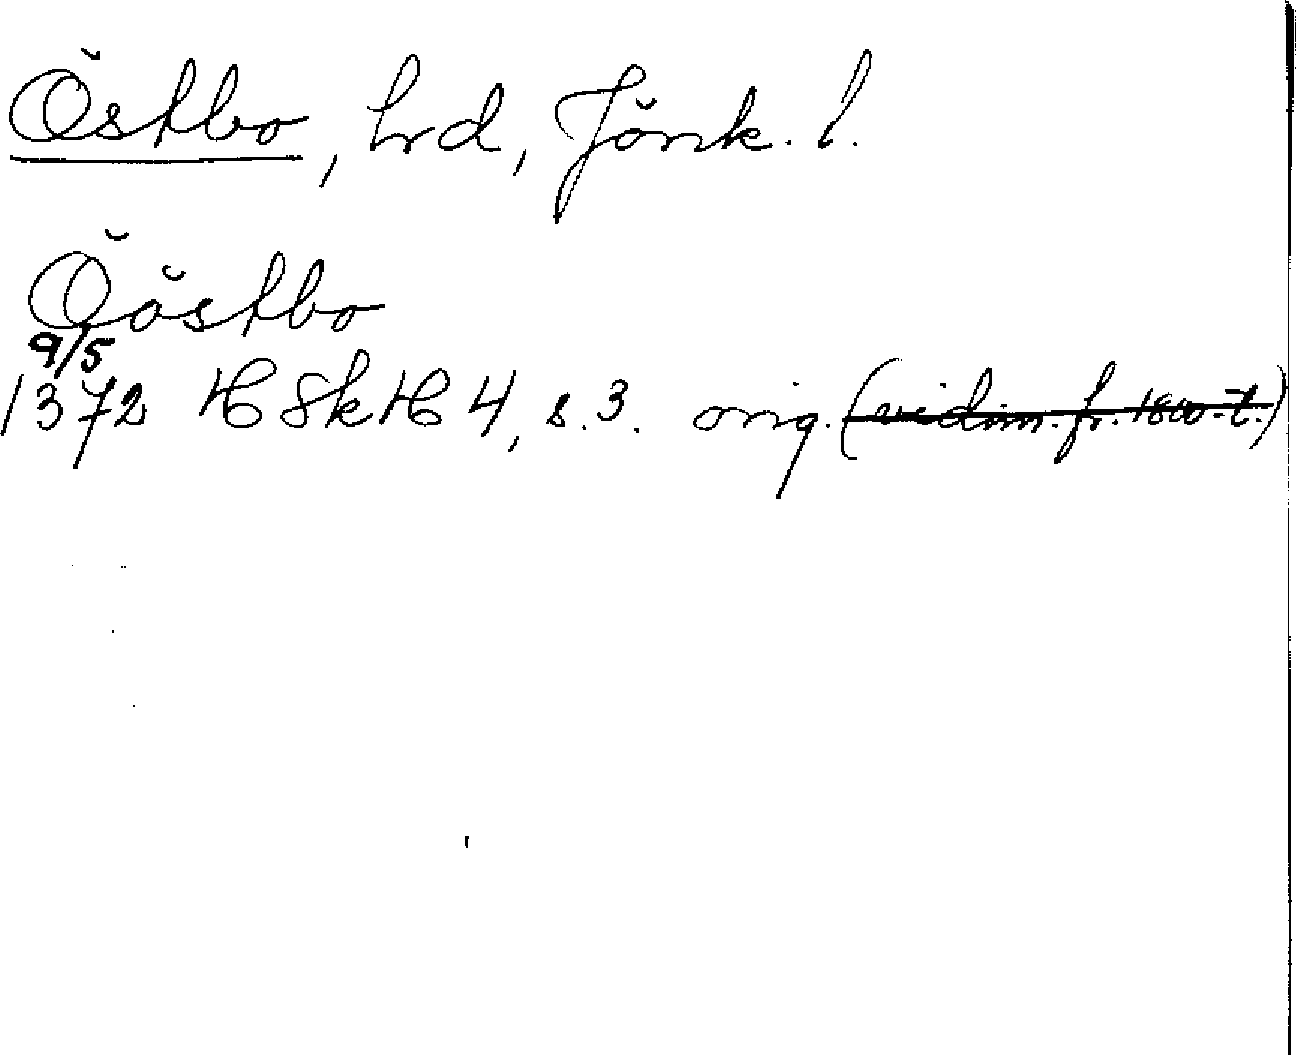 Östbo, hrd, Jönk. l.
Ööstbo
9/5
1372 HSkH 4, s. 3. orig. (vidim. fr. 1800-t.)